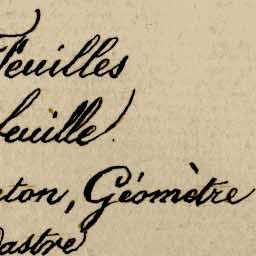 Feuilles
feuille.
eton, Géomètre
dastre